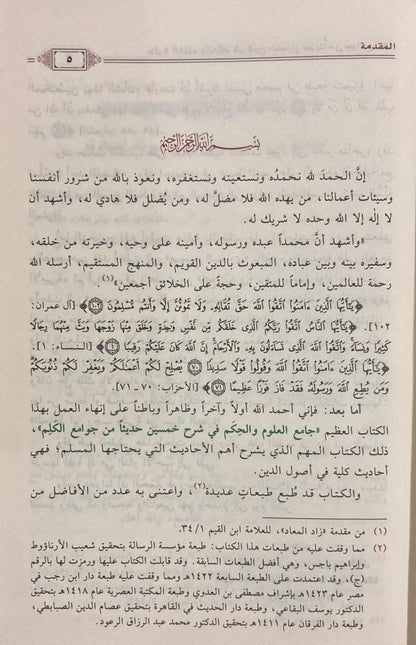 المقدمة
٥
بسم الله الرحمن الرحيم
إنَّ الحمدَ لله نحمدُه ونستعينه ونستغفره، ونعوذ بالله من شرور أنفسنا
وسيئات أعمالنا، من يهده الله فلا مضلَّ له، ومن يُضلل فلا هادي له، وأشهد أن
لا إلٰه إلا الله وحده لا شريك له.
«وأشهد أنَّ محمداً عبده ورسوله، وأمينه على وحيه، وخيرته من خلقه،
وسفيره بينه وبين عباده، المبعوث بالدين القويم، والمنهج المستقيم، أرسله الله
رحمة للعالمين، وإماماً للمتقين، وحجةً على الخلائق أجمعين»(١)
﴿يَٰٓأَيُّهَا ٱلَّذِينَ ءَامَنُوا۟ ٱتَّقُوا۟ ٱللَّهَ حَقَّ تُقَاتِهِۦ وَلَا تَمُوتُنَّ إِلَّا وَأَنتُم مُّسْلِمُونَ ﴿١٠٢﴾﴾ [آل عمران:
١٠٢]. ﴿يَٰٓأَيُّهَا ٱلنَّاسُ ٱتَّقُوا۟ رَبَّكُمُ ٱلَّذِى خَلَقَكُم مِّن نَّفْسٍ وَٰحِدَةٍ وَخَلَقَ مِنْهَا زَوْجَهَا وَبَثَّ مِنْهُمَا رِجَالًا
كَثِيرًا وَنِسَآءً وَٱتَّقُوا۟ ٱللَّهَ ٱلَّذِى تَسَآءَلُونَ بِهِۦ وَٱلْأَرْحَامَ إِنَّ ٱللَّهَ كَانَ عَلَيْكُمْ رَقِيبًا ﴿١﴾﴾ [النساء: ١].
﴿يَٰٓأَيُّهَا ٱلَّذِينَ ءَامَنُوا۟ ٱتَّقُوا۟ ٱللَّهَ وَقُولُوا۟ قَوْلًا سَدِيدًا ﴿٧٠﴾ يُصْلِحْ لَكُمْ أَعْمَٰلَكُمْ وَيَغْفِرْ لَكُمْ ذُنُوبَكُمْ
وَمَن يُطِعِ ٱللَّهَ وَرَسُولَهُۥ فَقَدْ فَازَ فَوْزًا عَظِيمًا ﴿٧١﴾﴾ [الأحزاب: ٧٠ ـ ٧١].
أما بعد: فإني أحمد الله أولاً وآخراً وظاهراً وباطناً على إنهاء العمل بهذا
الكتاب العظيم «جامع العلوم والحِكَم في شرح خمسين حديثاً من جوامع الكَلِم»،
ذلك الكتاب المهم الذي يشرح أهم الأحاديث التي يحتاجها المسلم؛ فهي
أحاديث كلية في أصول الدين.
والكتاب قد طُبع طبعاتٍ عديدة(٢)، واعتنى به عدد من الأفاضل من
(١) من مقدمة «زاد المعاد»، للعلامة ابن القيم ٣٤/١.
(٢) مما وقفت عليه من طبعات هذا الكتاب: طبعة مؤسسة الرسالة بتحقيق شعيب الأرناؤوط
وإبراهيم باجس، وهي أفضل الطبعات السابقة. وقد قابلت الكتاب عليها ورمزت لها بالرقم
(ج)، وقد اعتمدت على الطبعة السابعة ١٤٢٢هـ ومما وقفت عليه طبعة دار ابن رجب في
مصر عام ١٤٢٣هـ بإشراف مصطفى بن العدوي وطبعة المكتبة العصرية عام ١٤١٨هـ بتحقيق
الدكتور يوسف البقاعي، وطبعة دار الحديث في القاهرة بتحقيق عصام الدين الصبابطي،
وطبعة دار الفرقان عام ١٤١١هـ بتحقيق الدكتور محمد عبد الرزاق الرعود.